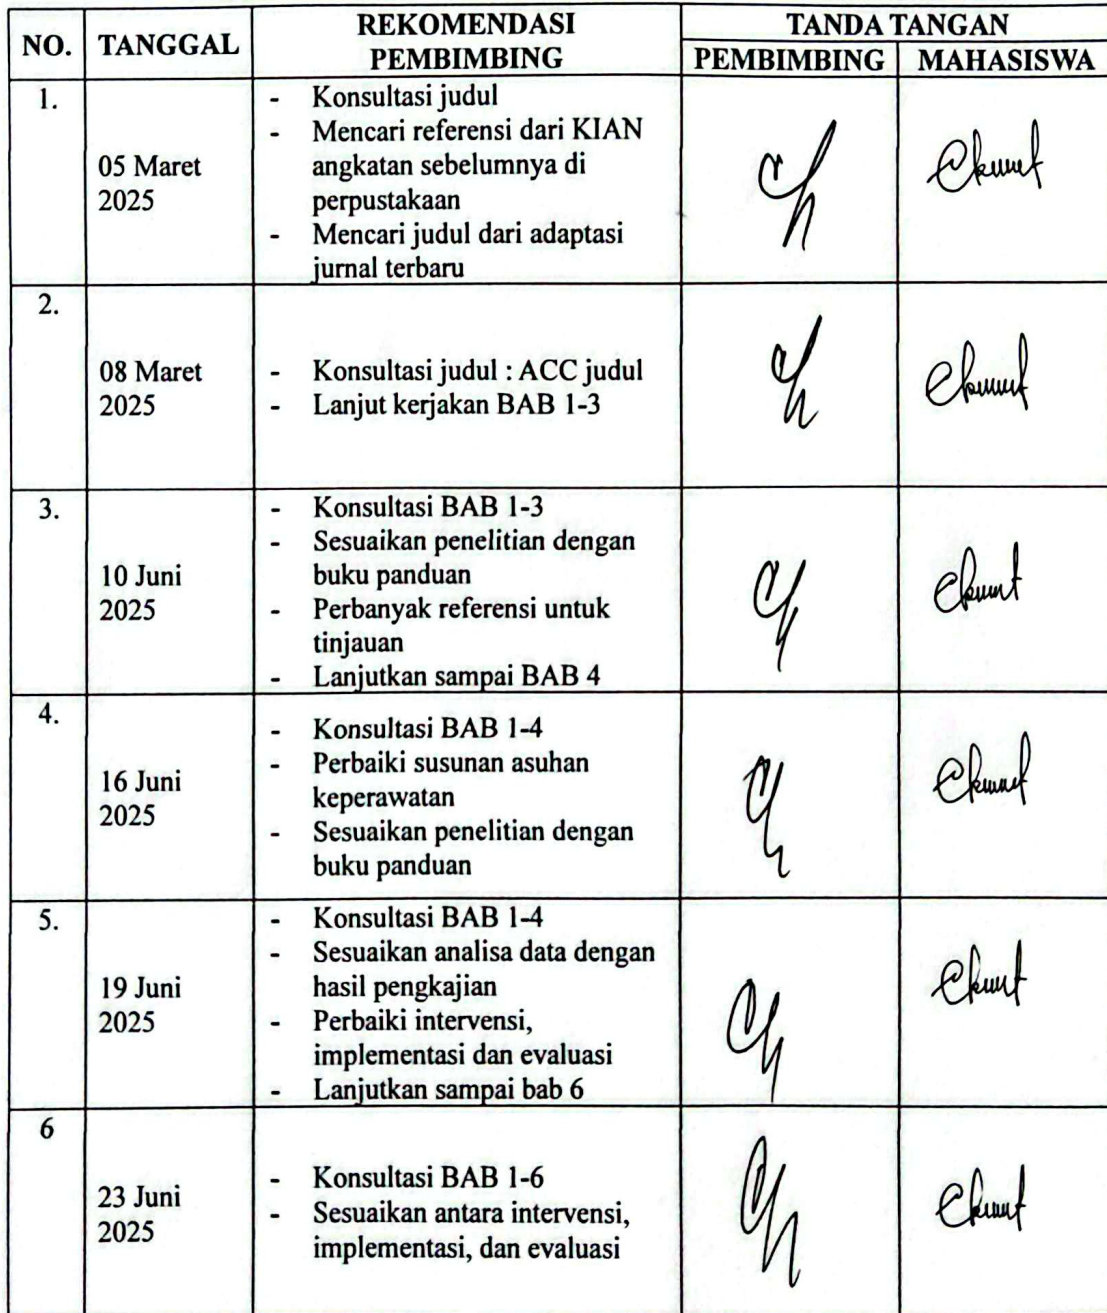 NO. TANGGAL REKOMENDASI PEMBIMBING TANDA TANGAN
PEMBIMBING MAHASISWA
1.
05 Maret
2025
- Konsultasi judul
- Mencari referensi dari KIAN
angkatan sebelumnya di
perpustakaan
- Mencari judul dari adaptasi
jurnal terbaru
2.
08 Maret
2025
- Konsultasi judul : ACC judul
- Lanjut kerjakan BAB 1-3
3.
10 Juni
2025
- Konsultasi BAB 1-3
- Sesuaikan penelitian dengan
buku panduan
- Perbanyak referensi untuk
tinjauan
- Lanjutkan sampai BAB 4
4.
16 Juni
2025
- Konsultasi BAB 1-4
- Perbaiki susunan asuhan
keperawatan
- Sesuaikan penelitian dengan
buku panduan
5.
19 Juni
2025
- Konsultasi BAB 1-4
- Sesuaikan analisa data dengan
hasil pengkajian
- Perbaiki intervensi,
implementasi dan evaluasi
- Lanjutkan sampai bab 6
6
23 Juni
2025
- Konsultasi BAB 1-6
- Sesuaikan antara intervensi,
implementasi, dan evaluasi